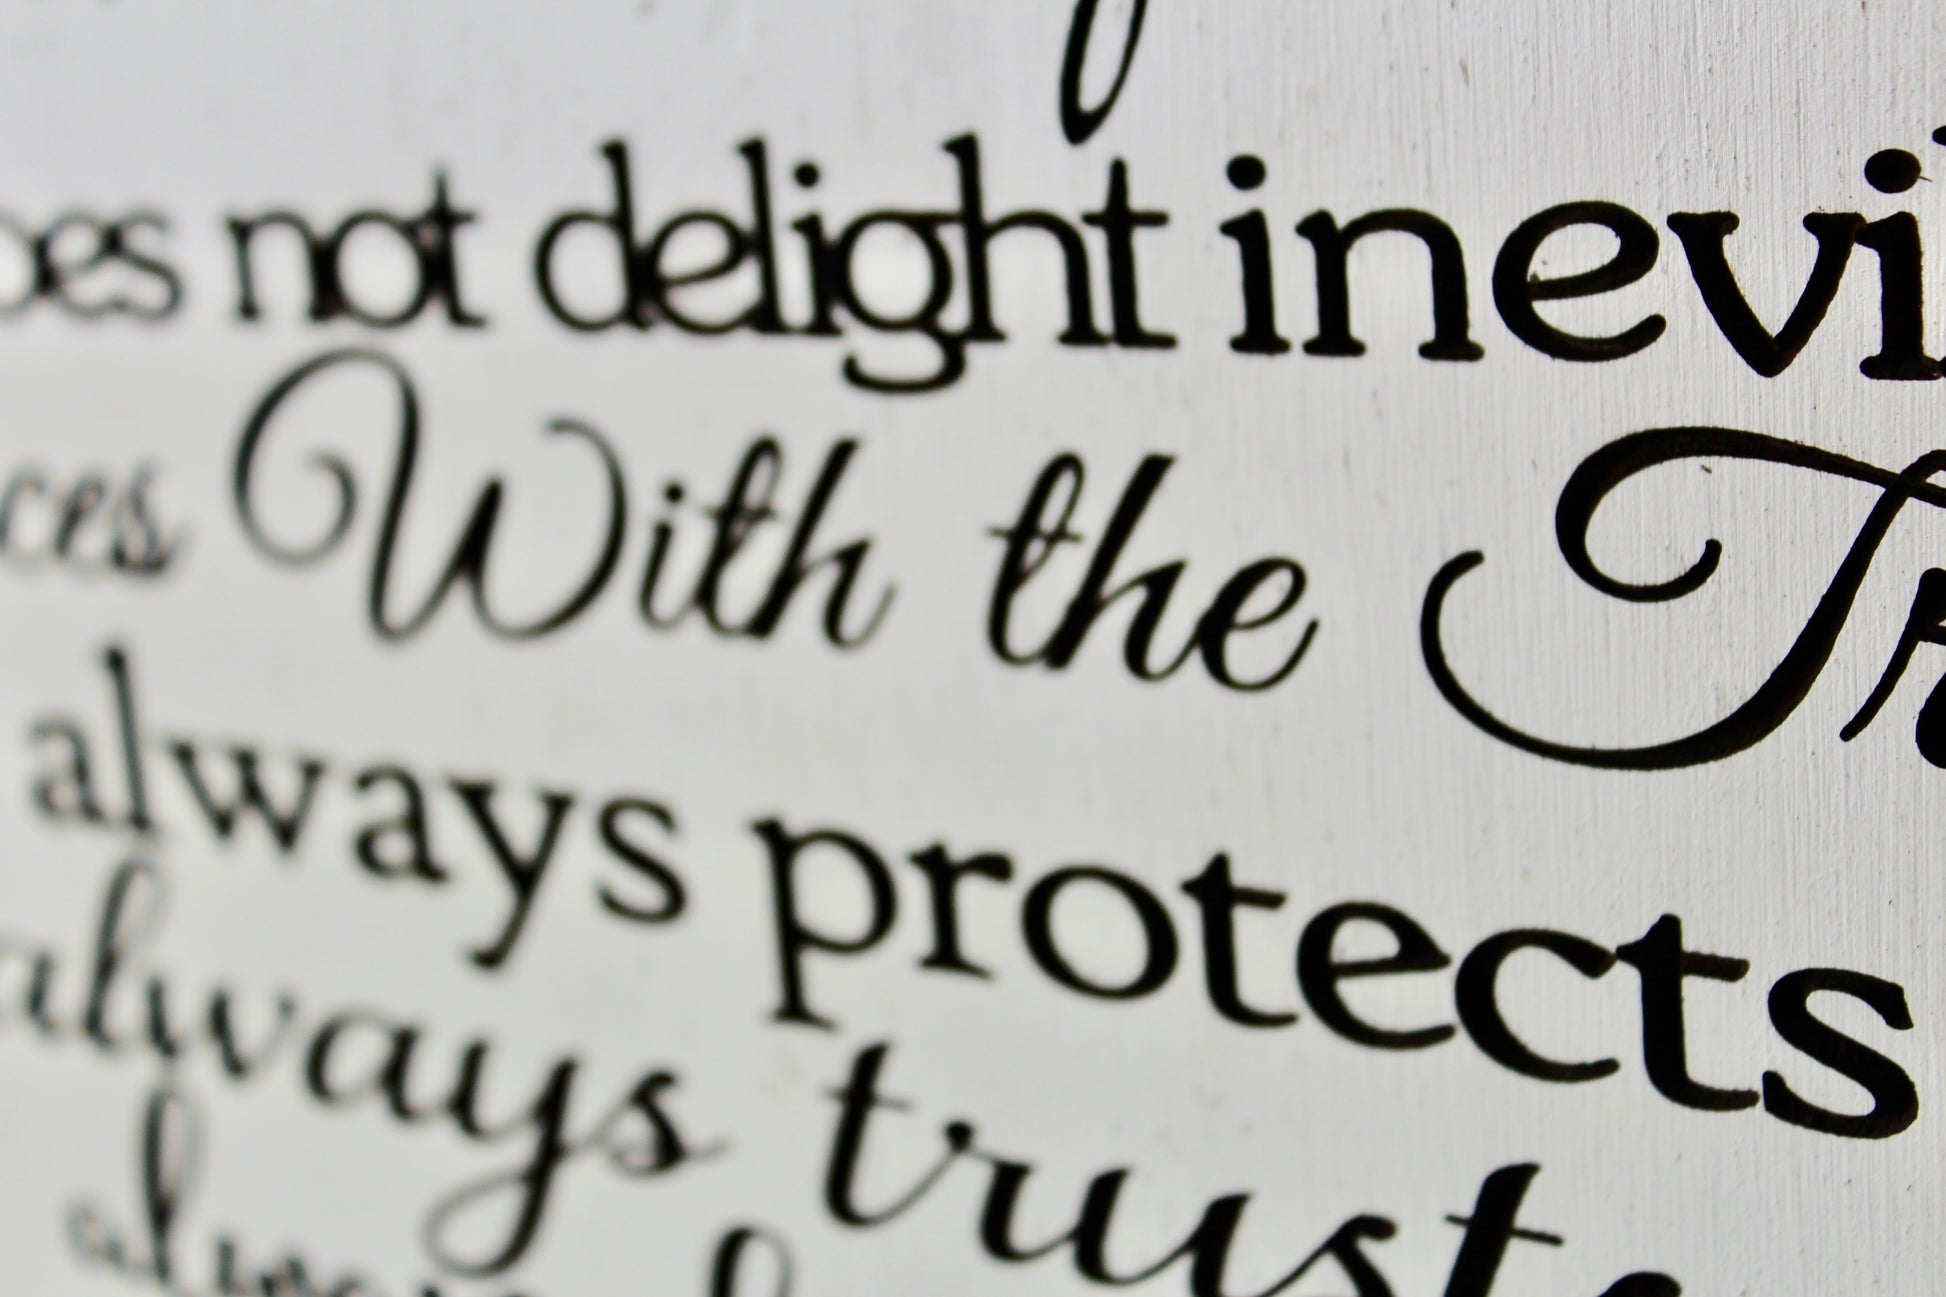 oes not delight in evil
ces With the Tr
always protects
always trusts
always h